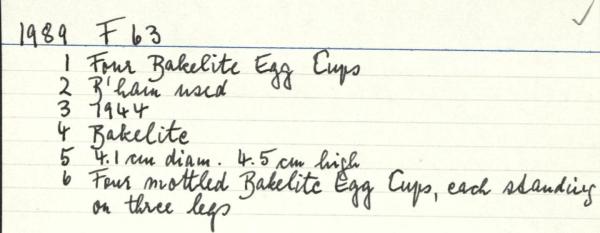 1989 F 63
1 Four Bakelite Egg Cups
2 B'ham used
3 1944
4 Bakelite
5 4.1 cm diam. 4.5 cm high
6 Four mottled Bakelite Egg Cups, each standing
on three legs